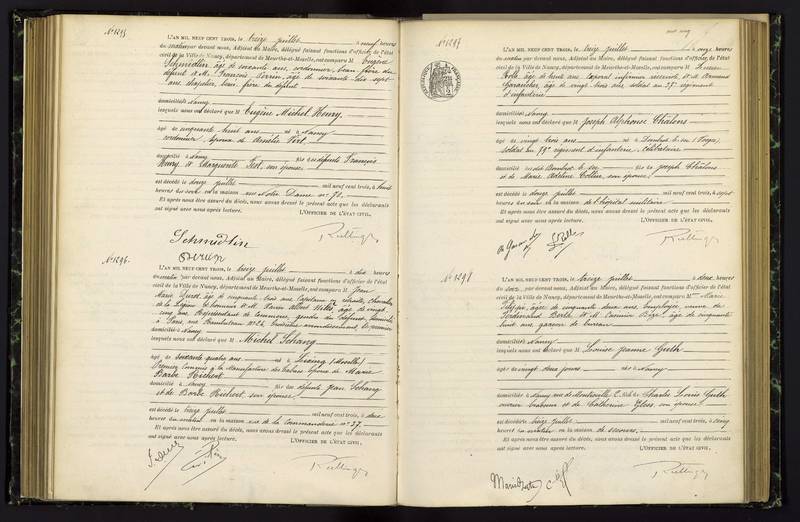 N° 1295
L'AN MIL NEUF CENT TROIS, le treize juillet à neuf heures
du matin par devant nous, Adjoint au Maire, délégué faisant fonctions d'officier de l'état
civil de la Ville de Nancy, département de Meurthe-et-Moselle, ont comparu M. Eugène
Schmidlin, âgé de soixante ans, cordonnier, beau frère du
défunt et M. François Perrin, âgé de soixante dix sept
ans, chapelier, beau frère du défunt
domiciliés à Nancy
lesquels nous ont déclaré que M Eugène Michel Henry
âgé de cinquante huit ans né à Nancy
cordonnier, époux de Amélie Viot
domicilié à Nancy fils des défunts François
Henry et Marguerite, son épouse
est décédé le douze juillet mil neuf cent trois, à
heures du soir en la maison rue Notre Dame n° 72
Et après nous être assuré du décès, nous avons dressé le présent acte que les déclarants
ont signé avec nous après lecture. L'OFFICIER DE L'ÉTAT CIVIL,
Schmidlin
N° 1296
L'AN MIL NEUF CENT TROIS, le treize juillet à dix heures
du matin par devant nous, Adjoint au Maire, délégué faisant fonctions d'officier de l'état
civil de la Ville de Nancy, département de Meurthe-et-Moselle, ont comparu M. Jean
Marie, âgé de cinquante trois ans, Capitaine en retraite, chevalier
de la Légion d'honneur et M. Pierre Albert, âgé de vingt
cinq ans, Représentant de commerce, gendre du défunt, domicilié
à Paris rue Rambuteau n° 26, troisième arrondissement, le premier
domicilié à Nancy
lesquels nous ont déclaré que M Michel Schang
âgé de soixante quatre ans né à Sixing (Moselle)
Premier Commis à la Manufacture des tabacs époux de Marie
Barbe Richert
domicilié à Nancy fils des défunts Jean Schang
et de Barbe Richert, son épouse
est décédé le treize juillet mil neuf cent trois, à deux
heures du matin en la maison rue de la Commanderie n° 37
Et après nous être assuré du décès, nous avons dressé le présent acte que les déclarants
ont signé avec nous après lecture. L'OFFICIER DE L'ÉTAT CIVIL,
N° 1297
L'AN MIL NEUF CENT TROIS, le treize juillet à onze heures
du matin par devant nous, Adjoint au Maire, délégué faisant fonctions d'officier de l'état
civil de la Ville de Nancy, département de Meurthe-et-Moselle, ont comparu M.
âgé de trente ans, Caporal infirmier et M. Armand
âgé de vingt trois ans soldat au régiment
d'infanterie
domiciliés à Nancy
lesquels nous ont déclaré que M Joseph Alphonse Châlons
âgé de vingt trois ans né à (Vosges)
soldat au 79e régiment d'infanterie, célibataire
fils de Joseph Châlons
et de Marie Adeline Colline, son épouse
est décédé le douze juillet mil neuf cent trois, à sept
heures du soir en la maison de l'hôpital militaire
Et après nous être assuré du décès, nous avons dressé le présent acte que les déclarants
ont signé avec nous après lecture. L'OFFICIER DE L'ÉTAT CIVIL,
N° 1298
L'AN MIL NEUF CENT TROIS, le treize juillet à deux heures
du soir par devant nous, Adjoint au Maire, délégué faisant fonctions d'officier de l'état
civil de la Ville de Nancy, département de Meurthe-et-Moselle, ont comparu Mme Marie
âgée de cinquante deux ans, employée, veuve de
Ferdinand et M. Casimir, âgé de cinquante
huit ans garçon de bureau
domiciliés à Nancy
lesquels nous ont déclaré que M Louise Jeanne Guth
âgée de vingt deux jours née à Nancy
domiciliée à Nancy rue de fille de Charles Louis Guth
et de Catherine Gloss, son épouse
est décédée le treize juillet mil neuf cent trois, à cinq
heures du matin en la maison de secours
Et après nous être assuré du décès, nous avons dressé le présent acte que les déclarants
ont signé avec nous après lecture. L'OFFICIER DE L'ÉTAT CIVIL,